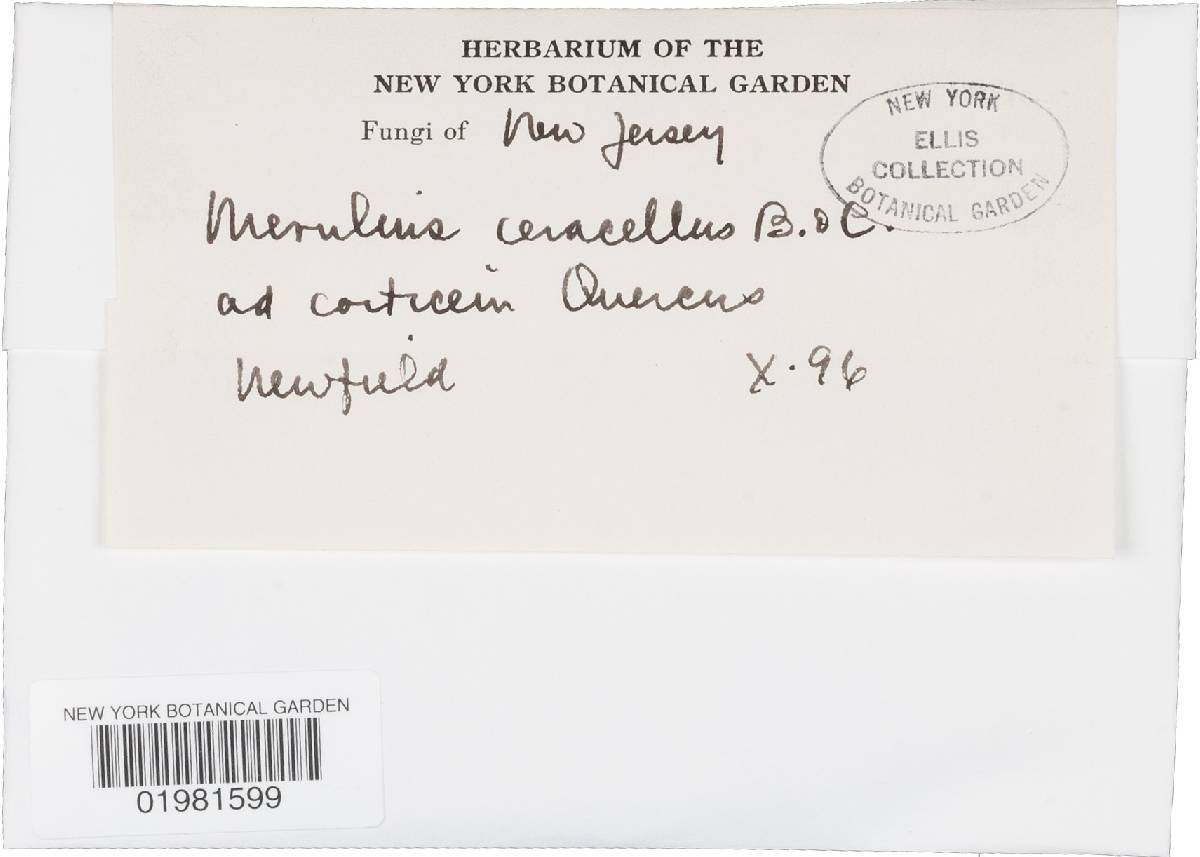 HERBARIUM OF THE
NEW YORK BOTANICAL GARDEN
Fungi of New Jersey
NEW YORK
ELLIS
COLLECTION
BOTANICAL GARDEN
Merulius ceracellus B. & C.
ad corticem Quercus
Newfield X. 96
NEW YORK BOTANICAL GARDEN
01981599